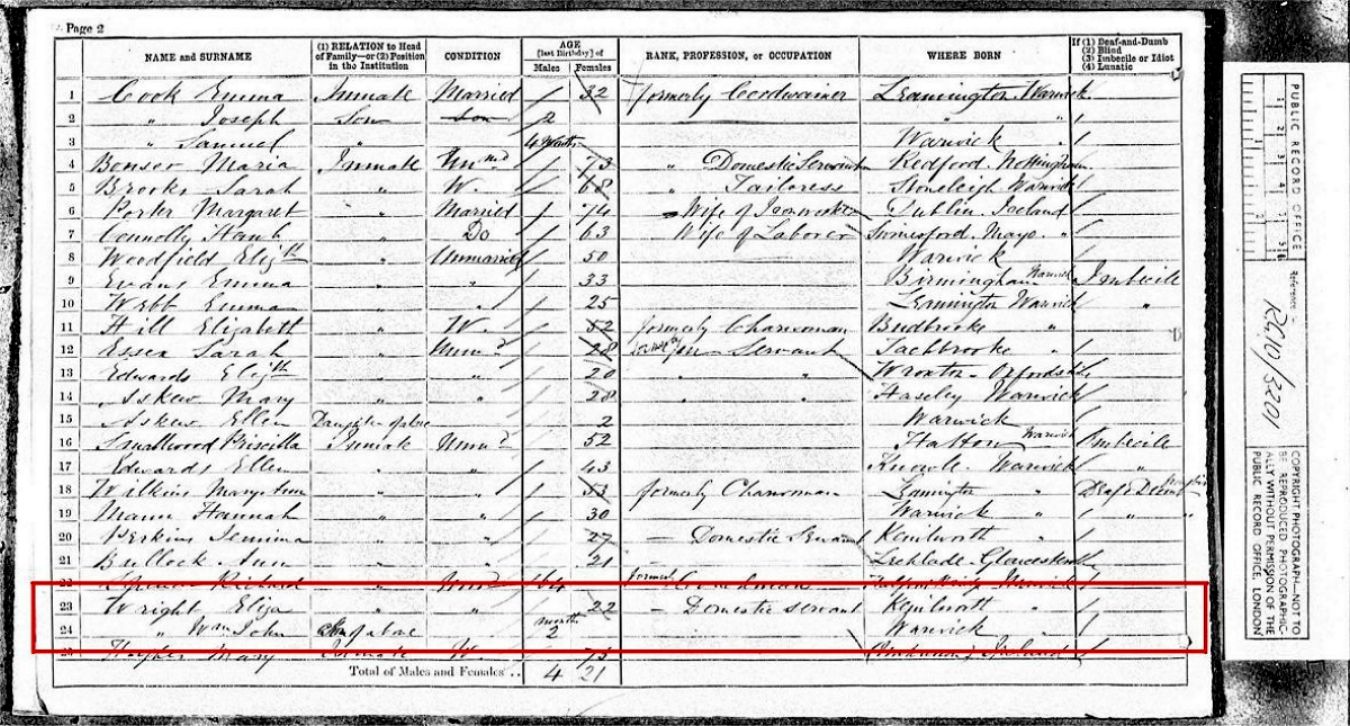 Page 2
NAME and SURNAME (1) RELATION to Head of Family—or (2) Position in the Institution CONDITION AGE [last Birthday] of Males Females RANK, PROFESSION, or OCCUPATION WHERE BORN If (1) Deaf-and-Dumb (2) Blind (3) Imbecile or Idiot (4) Lunatic
1 Cook Emma Inmate Married 32 formerly Cordwainer Leamington Warwick
2 " Joseph Son Son 2 "
3 " Samuel " 4 Months Warwick "
4 Bonser Maria Inmate Unmd 73 " Domestic Servant Redford Nottingham
5 Brooks Sarah " W. 68 " Tailoress Stoneleigh Warwick
6 Porter Margaret " Married 74 Wife of Ironworker Dublin Ireland
7 Connolly " Do 63 Wife of Laborer Mayo "
8 Woodfield Elizth " Unmarried 50 Warwick
9 Evans Emma " " 33 Birmingham Warwick Imbecile
10 Webb Emma " " 25 Leamington Warwick "
11 Hill Elizabeth " W. 82 formerly Charwoman Budbrooke "
12 Essex Sarah " Unmd 28 Servant Tachbrooke "
13 Edwards Elizth " " 20 " " Wroxton Oxfordshire
14 Askew Mary " " 28 " " Haseley Warwick
15 Askew Ellen Daughter of above 2 Warwick
16 Smallwood Priscilla Inmate Unmd 52 Hatton Warwick Imbecile
17 Edwards Ellen " " 43 Knowle Warwick "
18 Wilkins Mary Ann " " 53 formerly Charwoman Leamington " Deaf & Dumb
19 Mann Hannah " " 30 Warwick " " "
20 Perkins Jemima " " 27 — Domestic Servant Kenilworth "
21 Bullock Ann " " 21 Lechlade Gloucestersh
22 Richard " 64 formerly Warwick
23 Wright Eliza " " 22 — Domestic servant Kenilworth "
24 " Wm John Son of above months 2 Warwick "
25 Mary Inmate W. 73 Ireland
Total of Males and Females .. 4 21
PUBLIC RECORD OFFICE
Reference :—
RG10/3201
COPYRIGHT PHOTOGRAPH—NOT TO BE REPRODUCED PHOTOGRAPHICALLY WITHOUT PERMISSION OF THE PUBLIC RECORD OFFICE, LONDON